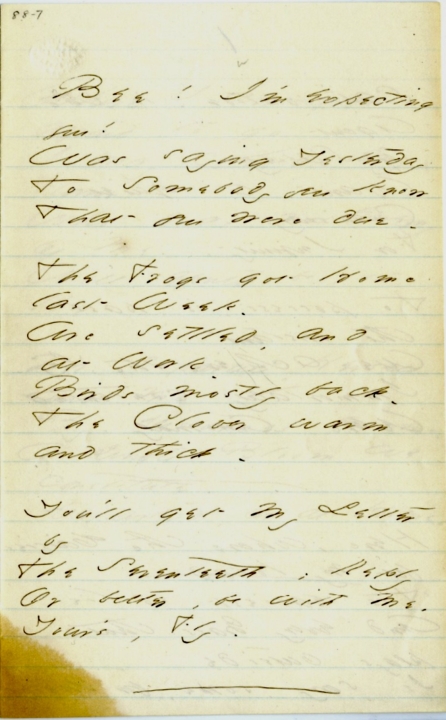 88-7
Bee! I'm expecting
you!
Was saying Yesterday
To Somebody you know
That you were due -
The Frogs got Home
last Week -
Are settled, and
at work -
Birds mostly back -
The Clover warm
and thick -
You'll get my Letter
by
The Seventeenth; Reply
Or better, be with me -
Your's, Fly.